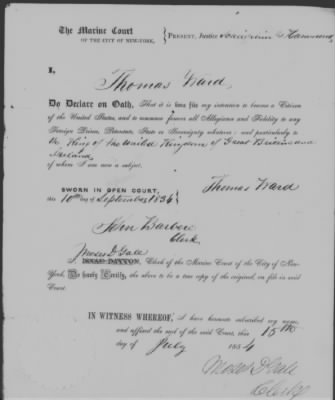 The Marine Court
OF THE CITY OF NEW-YORK,
PRESENT, Justice
I,
Thomas Ward,
Do Declare on Oath, That it is bona fide my intention to become a Citizen
of the United States, and to renounce forever all Allegiance and Fidelity to any
Foreign Prince, Potentate, State or Sovereignty whatever: and particularly to
the King of the United Kingdom of Great Britain and
Ireland,
of whom I am now a subject.
SWORN IN OPEN COURT,
this 10th day of September 1834
Thomas Ward
John Barbere
Clerk
Moses D. Gale
I, ISAAC DAYTON, Clerk of the Marine Court of the City of New-
York, Do hereby Certify, the above to be a true copy of the original, on file in said
Court.
IN WITNESS WHEREOF, I have hereunto subscribed my name,
and affixed the seal of the said Court, this 15th
day of July 1854
Moses D Gale
Clerk